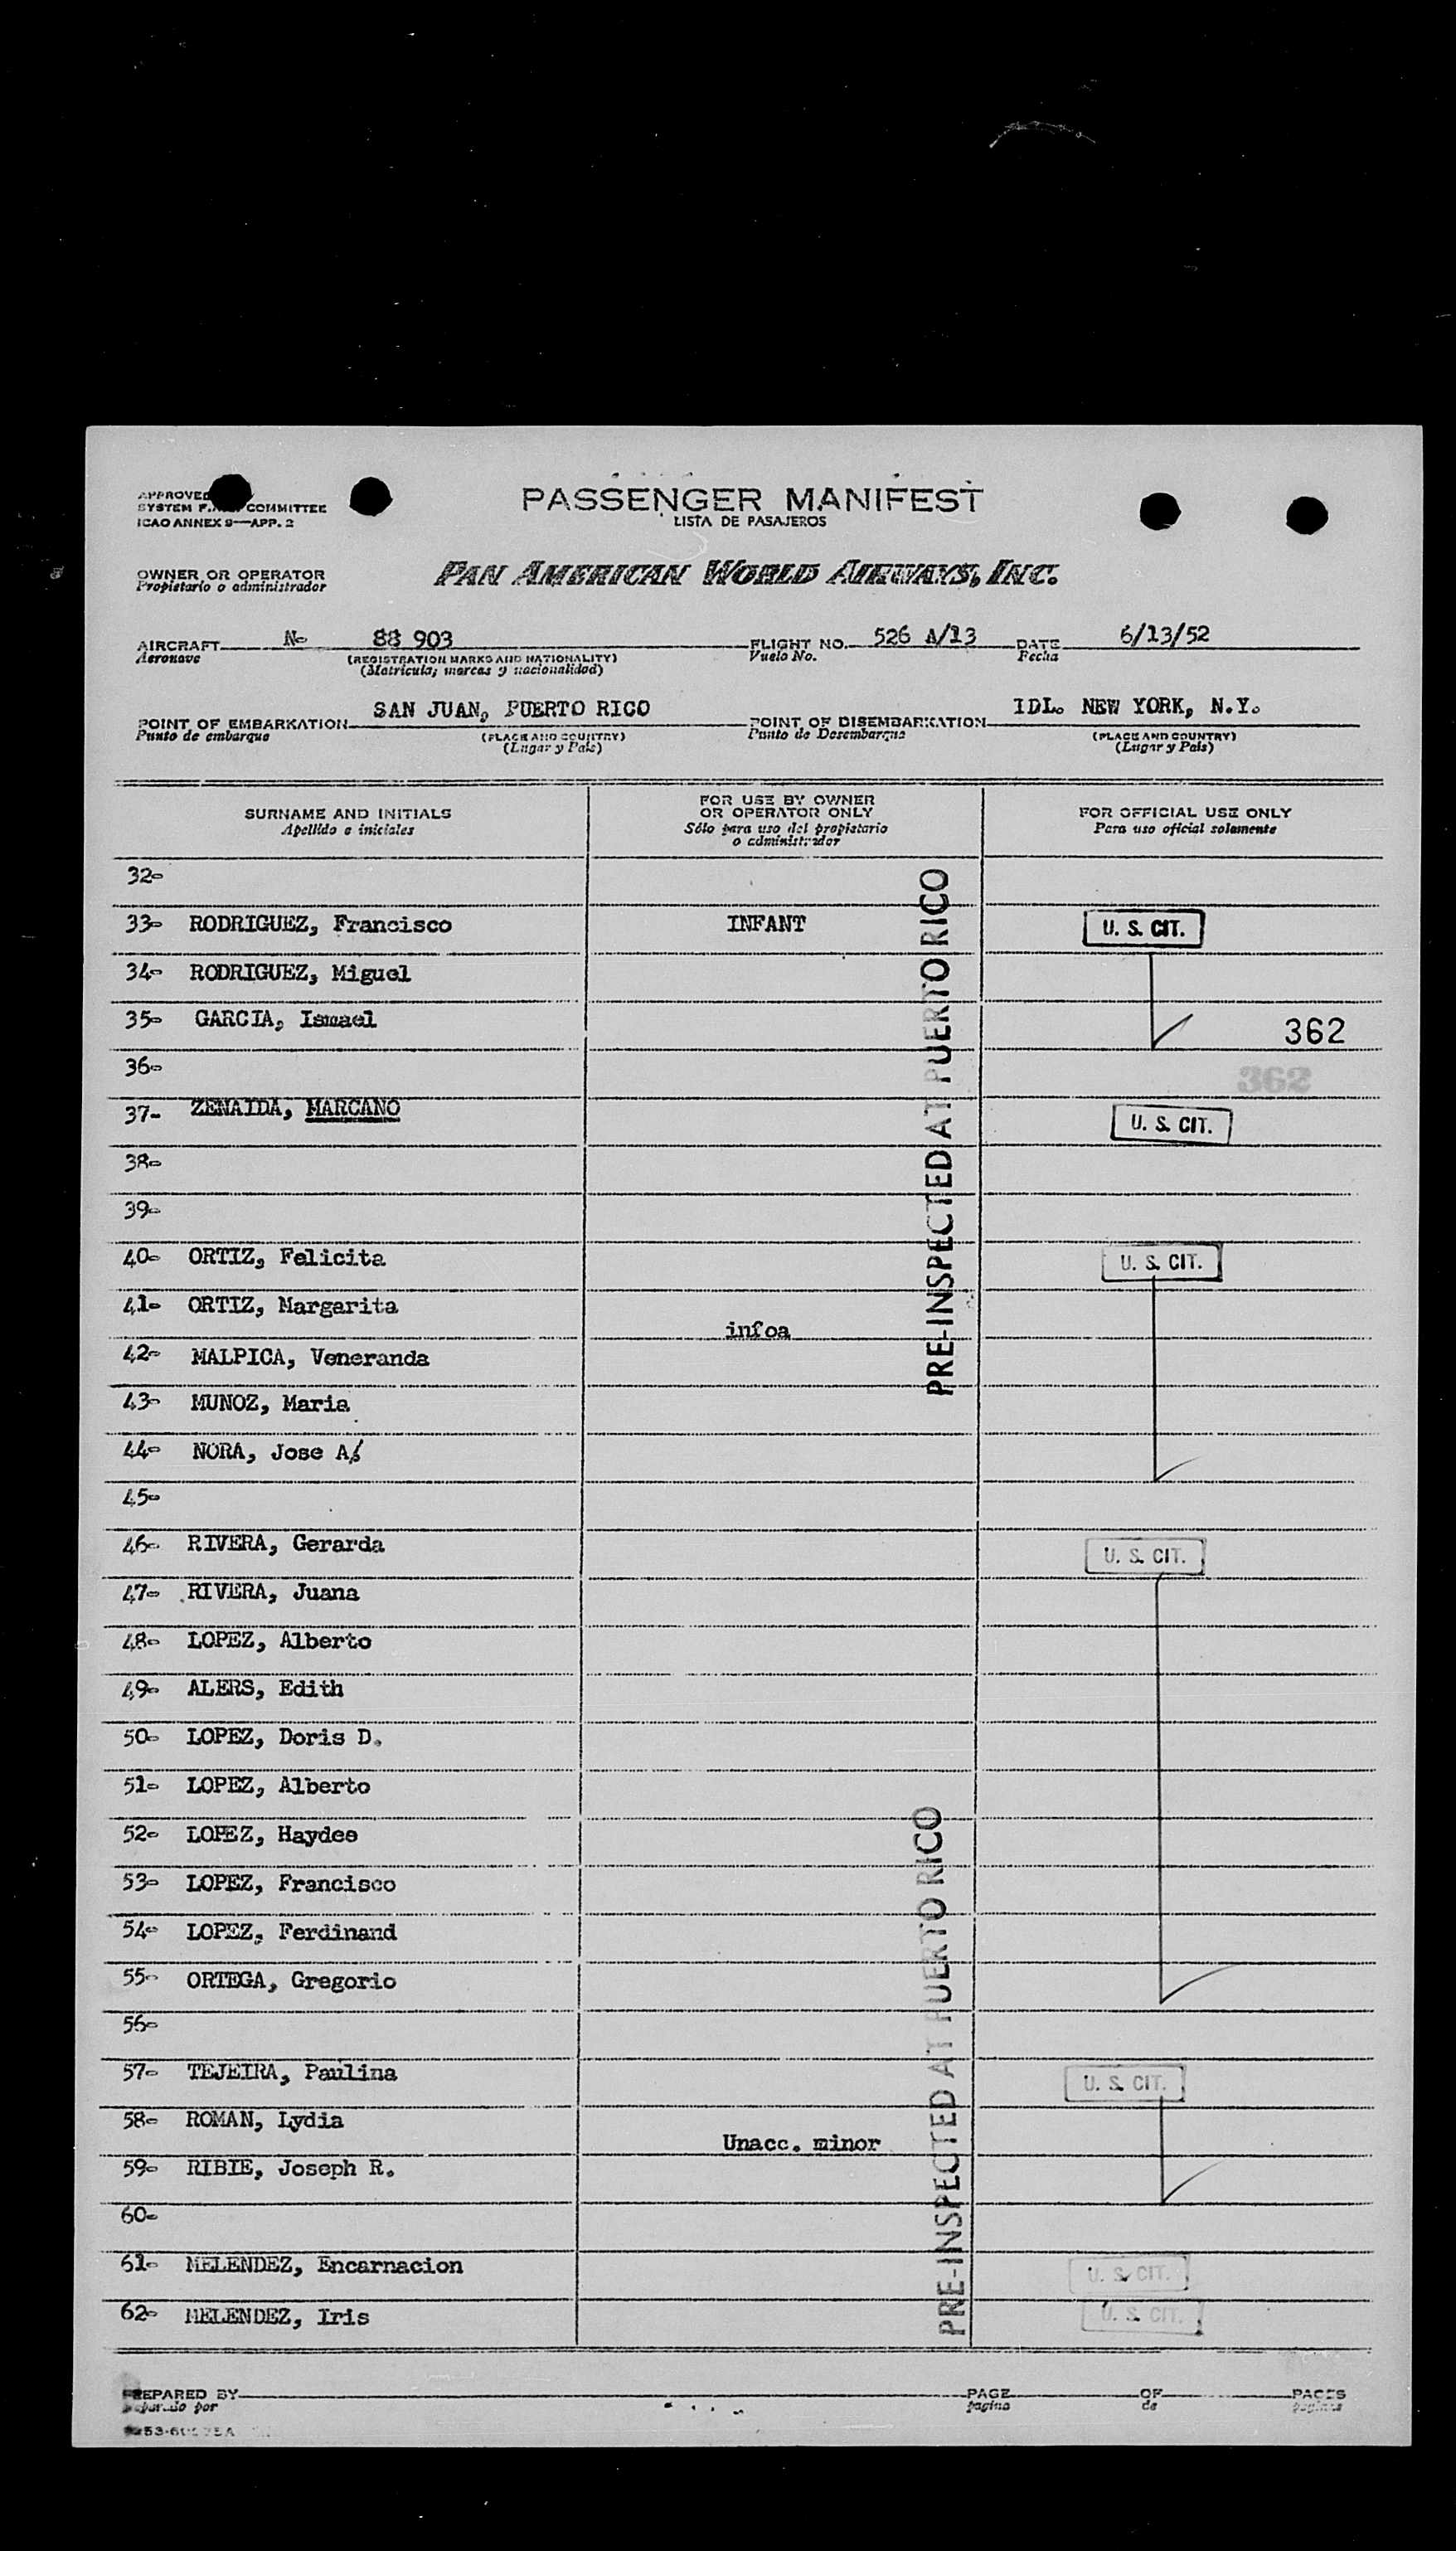 APPROVED
SYSTEM COMMITTEE
ICAO ANNEX 9—APP. 2
PASSENGER MANIFEST
LISTA DE PASAJEROS
OWNER OR OPERATOR
Propietario o administrador
PAN AMERICAN WORLD AIRWAYS, INC.
AIRCRAFT N- 88 903 FLIGHT NO. 526 A/13 DATE 6/13/52
Aeronave (REGISTRATION MARKS AND NATIONALITY) Vuelo No. Fecha
(Matricula, marcas y nacionalidad)
POINT OF EMBARKATION SAN JUAN, PUERTO RICO POINT OF DISEMBARKATION IDL. NEW YORK, N.Y.
Punto de embarque (PLACE AND COUNTRY) Punto de Desembarque (PLACE AND COUNTRY)
(Lugar y País) (Lugar y País)
SURNAME AND INITIALS
Apellido e iniciales
FOR USE BY OWNER
OR OPERATOR ONLY
Sólo para uso del propietario
o administrador
FOR OFFICIAL USE ONLY
Para uso oficial solamente
32-
33- RODRIGUEZ, Francisco INFANT U. S. CIT.
34- RODRIGUEZ, Miguel
35- GARCIA, Ismael 362
36- 362
37- ZENAIDA, MARCANO U. S. CIT.
38-
39-
40- ORTIZ, Felicita U. S. CIT.
41- ORTIZ, Margarita
infoa
42- MALPICA, Veneranda
43- MUNOZ, Maria
44- NORA, Jose A
45-
46- RIVERA, Gerarda U. S. CIT.
47- RIVERA, Juana
48- LOPEZ, Alberto
49- ALERS, Edith
50- LOPEZ, Doris D.
51- LOPEZ, Alberto
52- LOPEZ, Haydee
53- LOPEZ, Francisco
54- LOPEZ, Ferdinand
55- ORTEGA, Gregorio
56-
57- TEJEIRA, Paulina U. S. CIT.
58- ROMAN, Lydia
Unacc. minor
59- RIBIE, Joseph R.
60-
61- MELENDEZ, Encarnacion U. S. CIT.
62- MELENDEZ, Iris U. S. CIT.
PRE-INSPECTED AT PUERTO RICO
PRE-INSPECTED AT PUERTO RICO
PREPARED BY PAGE OF PAGES
por pagina de paginas